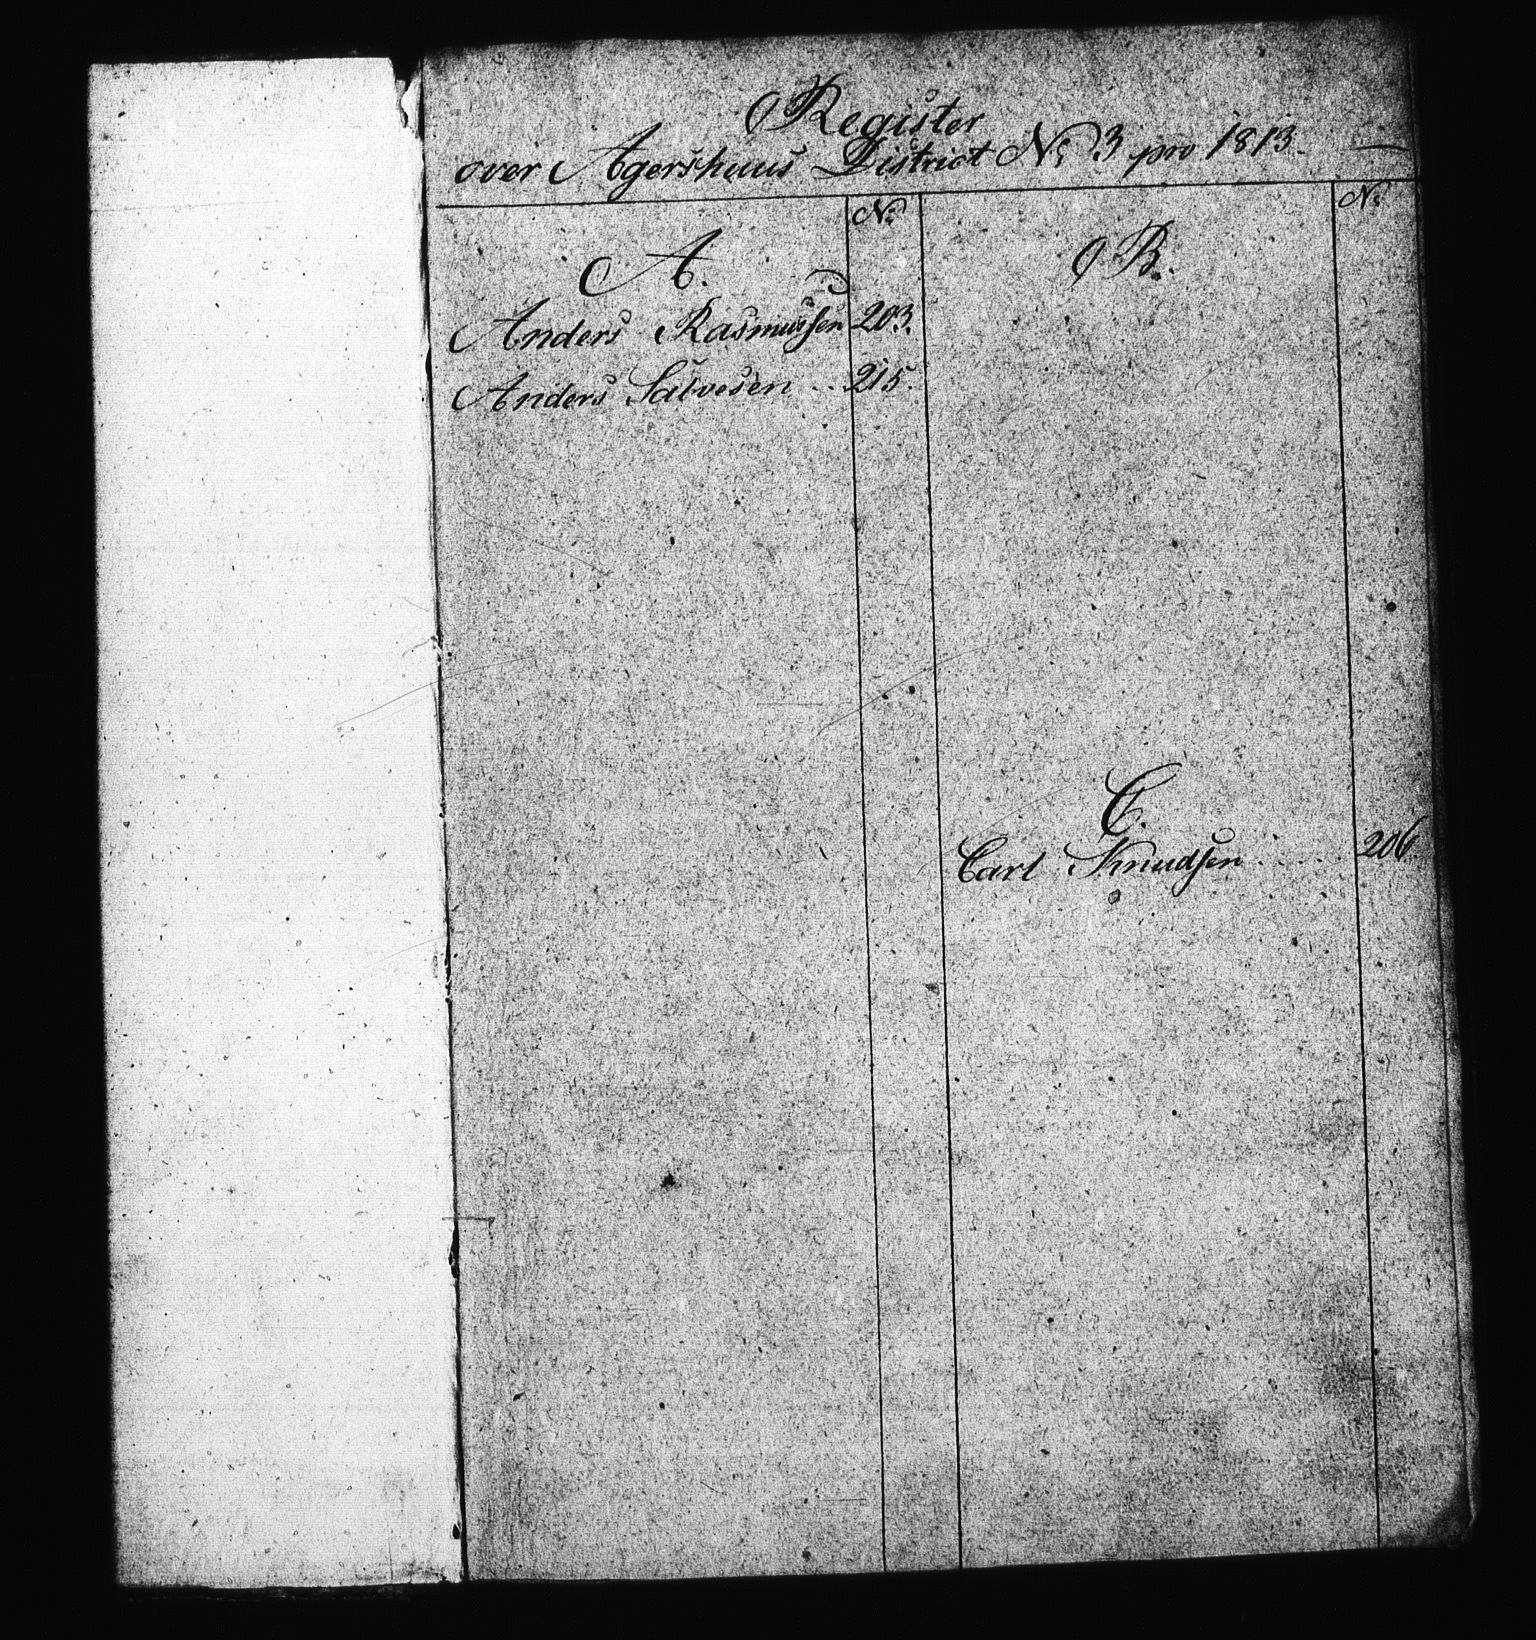 Register
over Agershuus District No 3 pro 1813.
No
A.
Anders Rasmussen 203.
Anders Salvesen .. 215.
No
B.
C.
Carl Knudsen ..... 206.